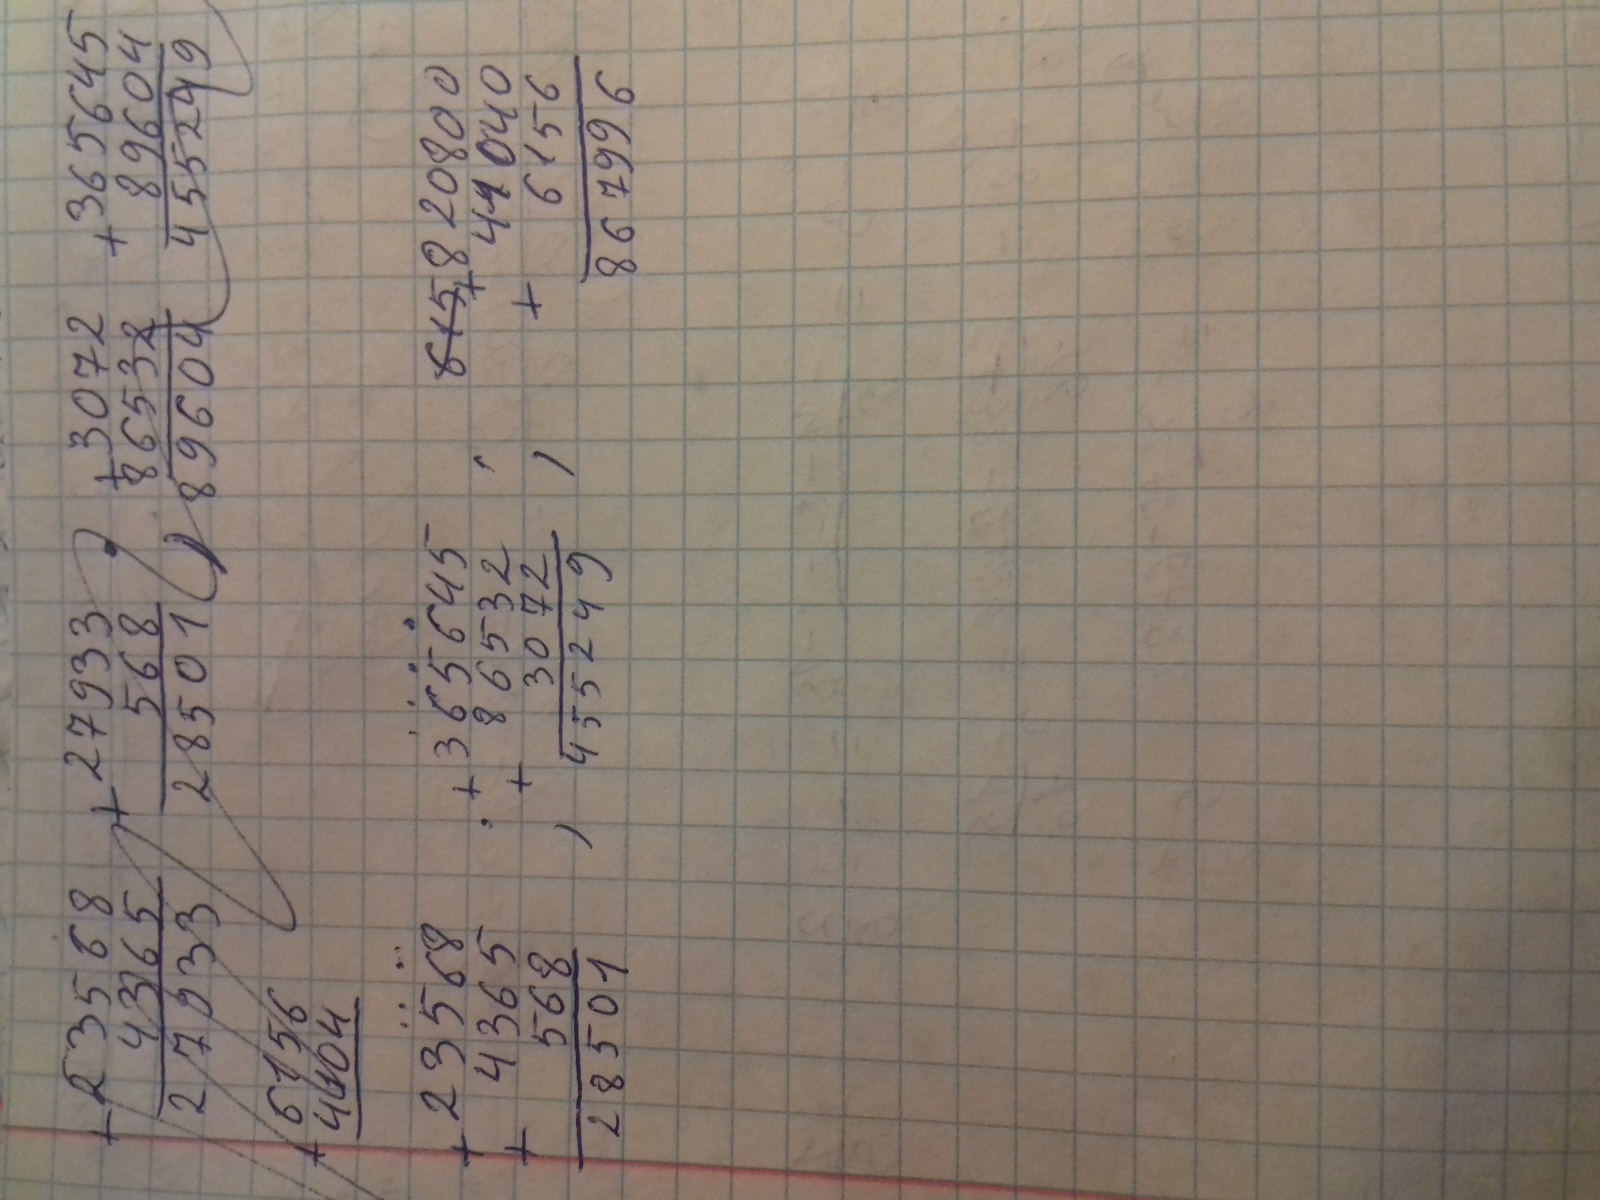 + 23568
4365
27933
+ 27933
568
28501
+ 3072
86532
89604
+ 365645
89604
455249
+ 6156
+ 23568
+ 4365
568
28501
+ 365645
+ 86532
3072
455249
615
+ 820800
+ 41040
6156
867996